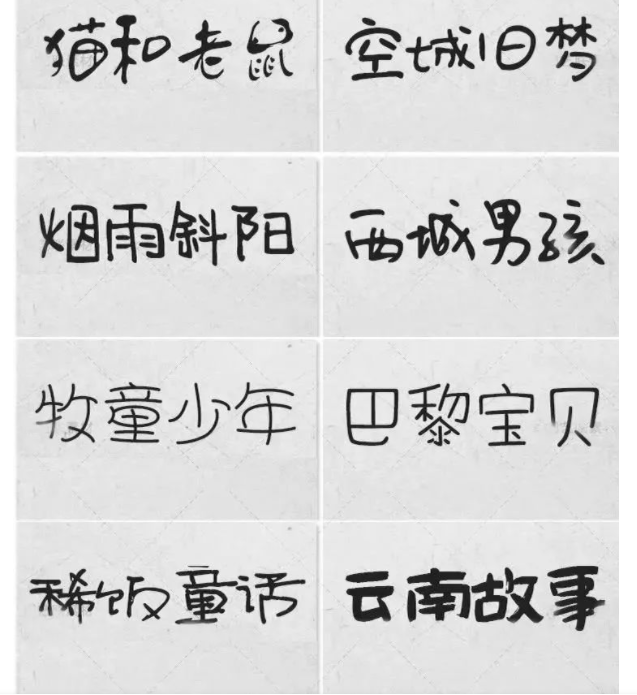 猫和老鼠
空城旧梦
烟雨斜阳
西城男孩
牧童少年
巴黎宝贝
稀饭童话
云南故事